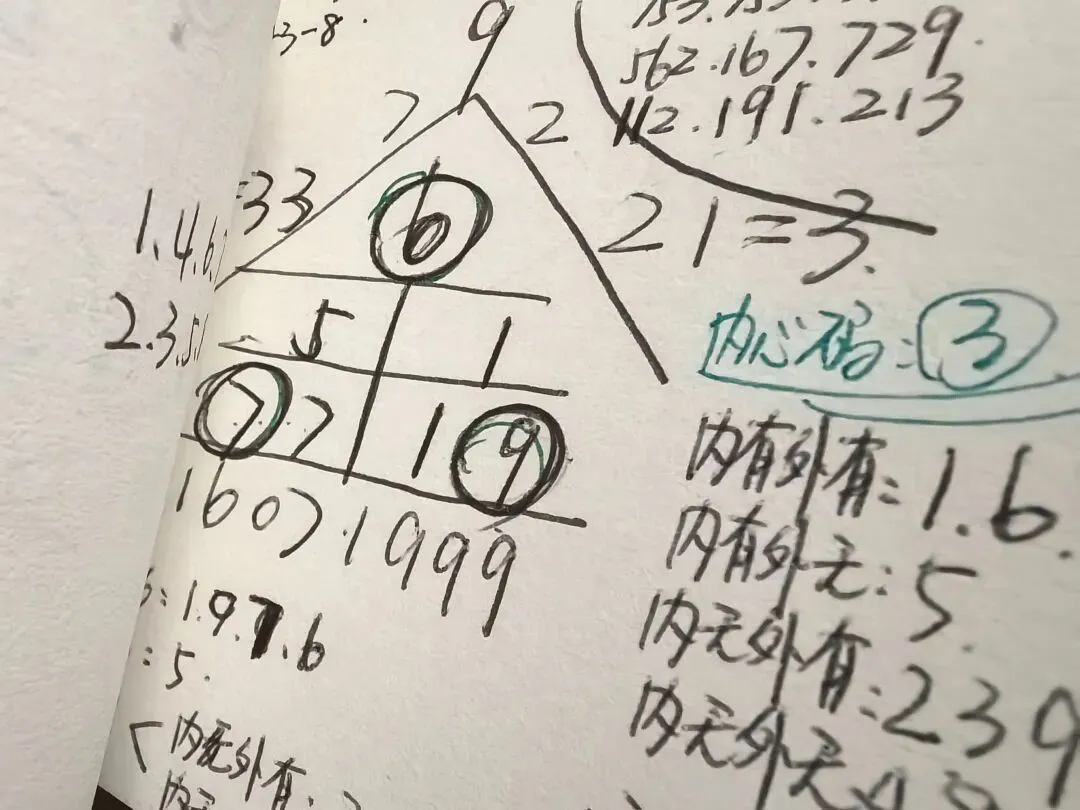 3-8.
9
562.167.729.
112.191.213
7 2
33
6
1.4.6.
21=3.
5 1
2.3.5.
内心码:3
7 7 1 9
内有外有:1.6.
1607.1999
内有外无:5.
=1.9.7.6
内无外有:239
=5.
内无外无
内无外有: